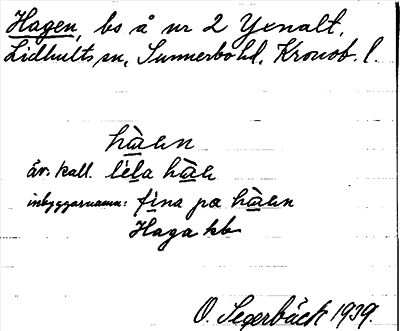 Hagen, bs å nr 2 Yxnalt,
Lidhults sn, Sunnerbo hd. Kronob. l.
hàɑn
äv. kall. lɩla hàɑ
inbyggarnamn: fina pɑ hàɑn
Haga kb
O. Segerbäck 1939.